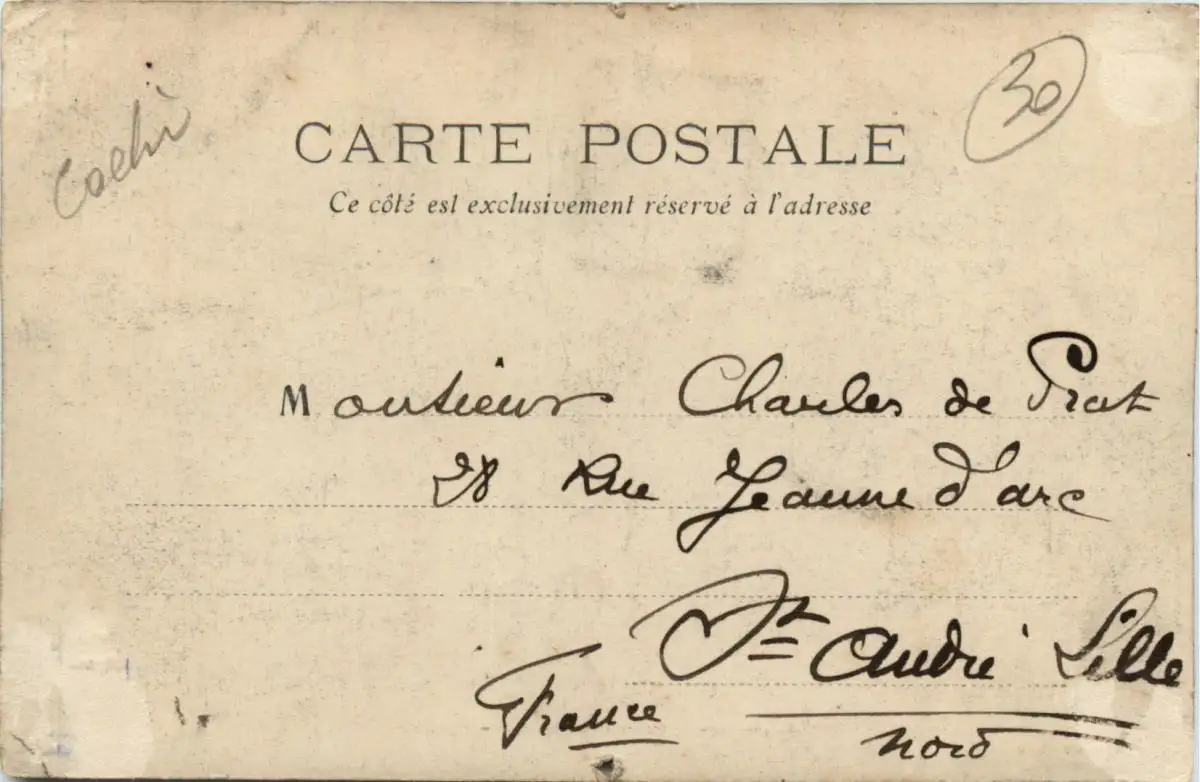 Cochi
30
CARTE POSTALE
Ce côté est exclusivement réservé à l'adresse
Monsieur Charles de Prat
28 Rue Jeanne d'arc
St André Lille
France
Nord